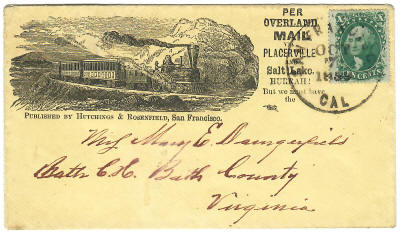 PER
OVERLAND
MAIL
VIA
PLACERVILLE
AND
Salt Lake.
HURRAH!
But we must have
the
CENTS
CAL
PUBLISHED BY HUTCHINGS & ROSENFIELD, San Francisco.
Mary E. Daingerfield
Bath C.H. Bath County
Virginia